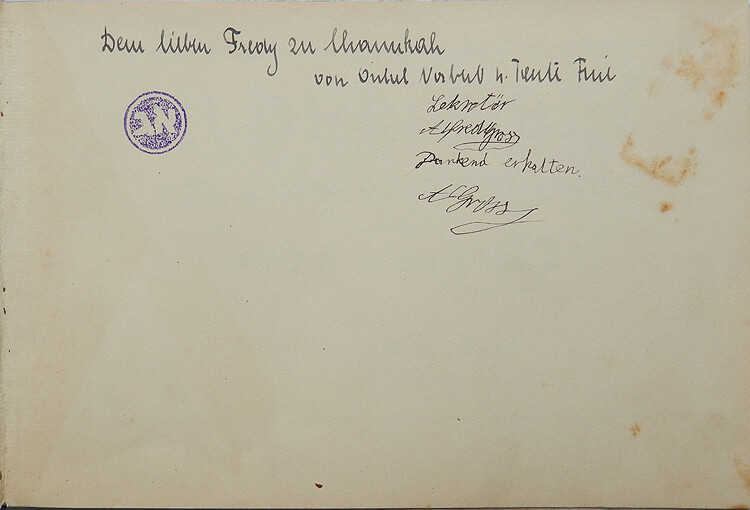 Dem lieben Fredy zu Chanukah
von Onkel Norbert u. Tante
Sekretär
Alfred Gross
Dankend erhalten.
A Gross